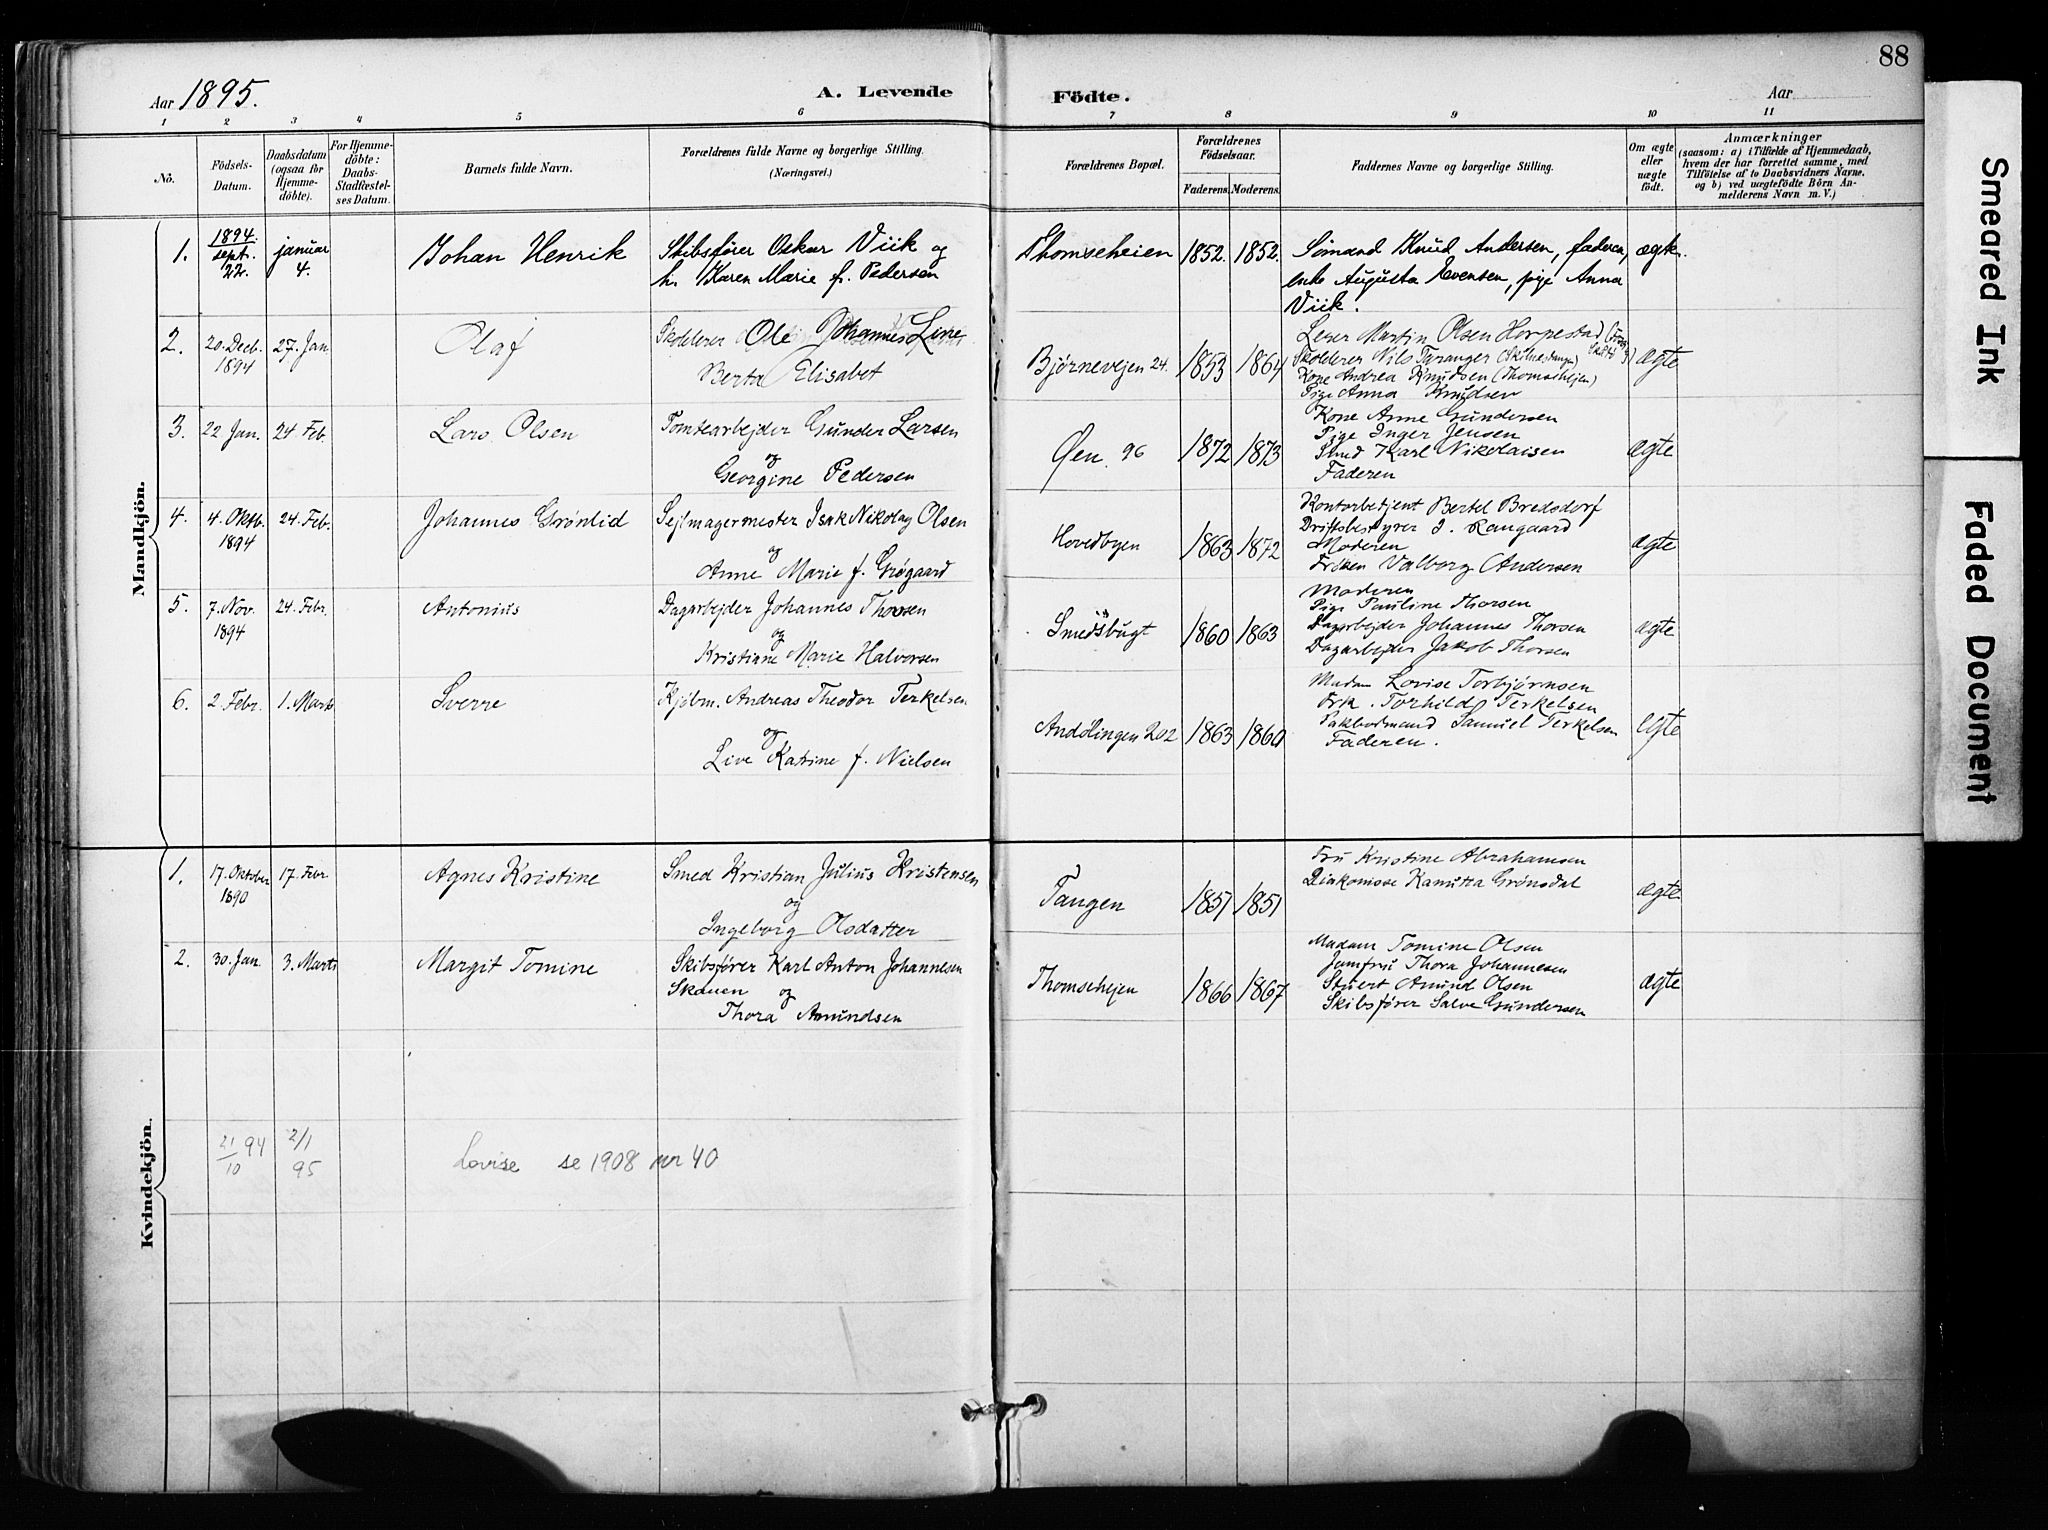 88
Aar 1895.
A. Levende Födte.
Aar
1 2 3 4 5 6 7 8 9 10 11
No.
Födsels-Datum.
Daabsdatum (ogsaa for Hjemme-döbte).
For Hjemme-döbte: Daabs-Stadfæstel-ses Datum.
Barnets fulde Navn.
Forældrenes fulde Navne og borgerlige Stilling.
(Næringsvei.)
Forældrenes Bopæl.
Forældrenes Födselsaar.
Faderens. Moderens.
Faddernes Navne og borgerlige Stilling.
Om ægte eller uægte födt.
Anmærkninger
(saasom: a) i Tilfælde af Hjemmedaab,
hvem der har forrettet samme, med
Tilföielse af to Daabsvidners Navne,
og b) ved uægtefödte Börn An-
melderens Navn m. V.)
Mandkjön.
1. 1894 sept. 22. januar 4. Johan Henrik
Skibsfører Oskar Viik og
h. Karen Marie f. Pedersen
Thomseheien 1852. 1852.
Sømand Knud Andersen, faderen,
enke Augusta Evensen, pige Anna
Viik.
ægte.
2. 20. Decb. 1894 27. Jan Olaf
Skolelærer Ole Johannes
Berta Elisabet
Bjørnevejen 24. 1853 1864
Martin Olsen Horpestad
Nils Taranger
Kone Andrea Knudsen (Thomsehejen)
Pige Anna Knudsen
ægte
3. 22 Jan. 24 Feb. Lars Olsen
Tomtearbejder Gunder Larsen
og
Georgine Pedersen
Øen. 96 1872 1873
Kone Anne Gundersen
Pige Inger Jensen
Smed Karl Nikolaisen
Faderen
ægte
4. 4. Oktb. 1894 24. Feb. Johannes Grønlid
Sejlmagermester Isak Nikolay Olsen
og
Anne Marie f. Grøgaard
Hovedbyen 1863 1872
Kontorbetjent Bertel Bredsdorf
Driftsbestyrer J. Rangaard
Moderen
Frøken Valborg Andersen
ægte
5. 7. Nov. 1894 24. Febr. Antonius
Dagarbejder Johannes Thorsen
og
Kristiane Marie Halvorsen
Smedsbugt 1860 1863
Moderen
Pige Pauline Thorsen
Dagarbejder Johannes Thorsen
Dagarbejder Jakob Thorsen
ægte
6. 2 Febr. 1. Marts Sverre
Kjøbm. Andreas Theodor Terkelsen
og
Live Katrine f. Nielsen
Andölingen 202 1863 1860
Madam Lovise Torbjørnsen
Frk. Torhild Terkelsen
Samuel Terkelsen
Faderen.
ægte
Kvindekjön.
1. 17. Oktober 1890 17. Febr Agnes Kristine
Smed Kristian Julius Kristensen
og
Ingeborg Olsdatter
Tangen 1851 1851
Fru Kristine Abrahamsen
Diakonisse Kanutta Grønsdal
ægte
2. 30. Jan. 3. Marts Margit Tomine
Skibsfører Karl Anton Johannesen
Skauen og
Thora Amundsen
Thomsehejen 1866 1867
Madam Tomine Olsen
Jomfru Thora Johannesen
Stuert Amund Olsen
Skibsfører Salve Gundersen
ægte
21/10 94 2/1 95 Lovise se 1908 nr 40
Smeared Ink
Faded Document